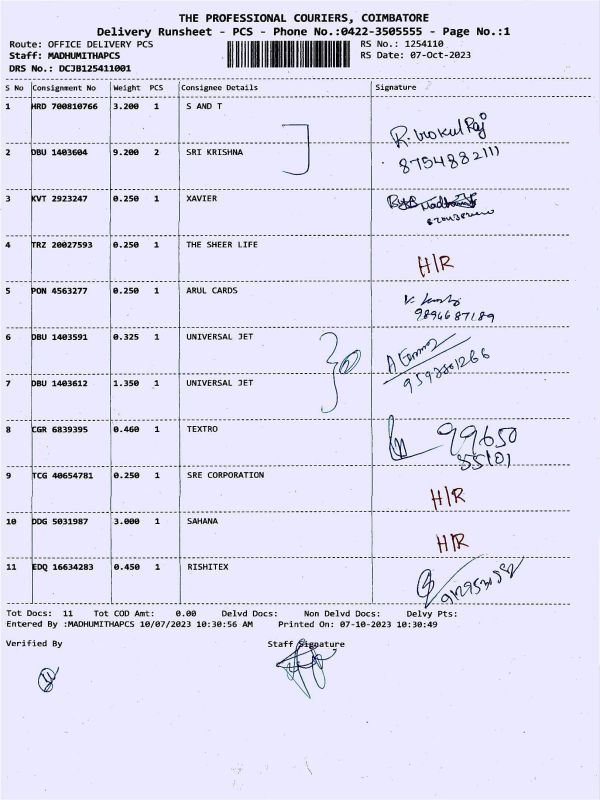 THE PROFESSIONAL COURIERS, COIMBATORE
Delivery Runsheet - PCS - Phone No.:0422-3505555 - Page No.:1
Route: OFFICE DELIVERY PCS RS No.: 1254110
Staff: MADHUMITHAPCS RS Date: 07-Oct-2023
DRS No.: DCJB125411001
S No Consignment No Weight PCS Consignee Details Signature
1 HRD 700810766 3.200 1 S AND T
R. Gokul Raj
2 DBU 1403604 9.200 2 SRI KRISHNA 8754882111
3 KVT 2923247 0.250 1 XAVIER
4 TRZ 20027593 0.250 1 THE SHEER LIFE
H/R
5 PON 4563277 0.250 1 ARUL CARDS
9894687189
6 DBU 1403591 0.325 1 UNIVERSAL JET
7 DBU 1403612 1.350 1 UNIVERSAL JET
8 CGR 6839395 0.460 1 TEXTRO 99650
55101
9 TCG 40654781 0.250 1 SRE CORPORATION
H/R
10 DDG 5031987 3.000 1 SAHANA
H/R
11 EDQ 16634283 0.450 1 RISHITEX
Tot Docs: 11 Tot COD Amt: 0.00 Delvd Docs: Non Delvd Docs: Delvy Pts:
Entered By :MADHUMITHAPCS 10/07/2023 10:30:56 AM Printed On: 07-10-2023 10:30:49
Verified By Staff Signature